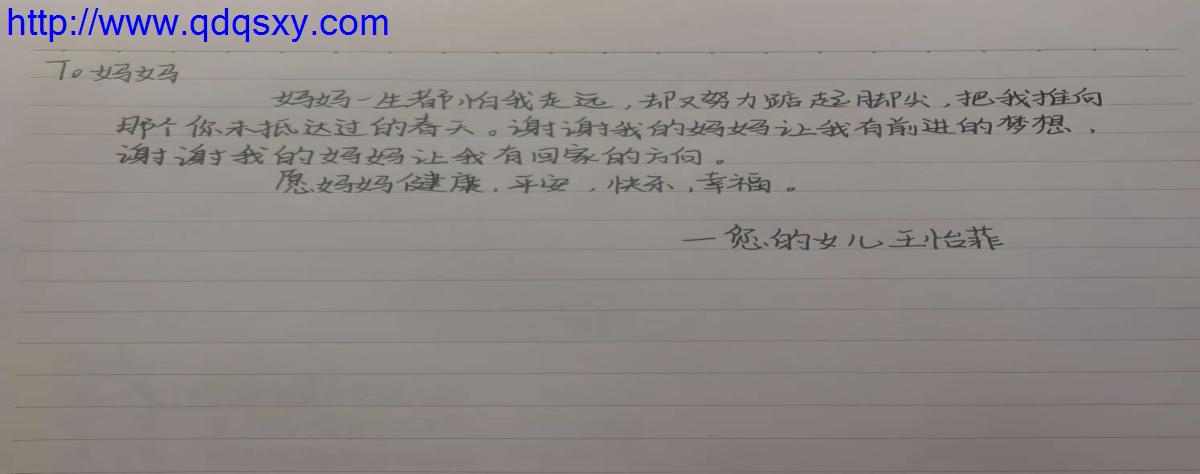 http://www.qdqsxy.com
To 妈妈
妈妈一生都怕我走远，却又努力踮起脚尖，把我推向
那个你未抵达过的春天。谢谢我的妈妈让我有前进的梦想，
谢谢我的妈妈让我有回家的方向。
愿妈妈健康，平安，快乐，幸福。
—您的女儿王怡菲